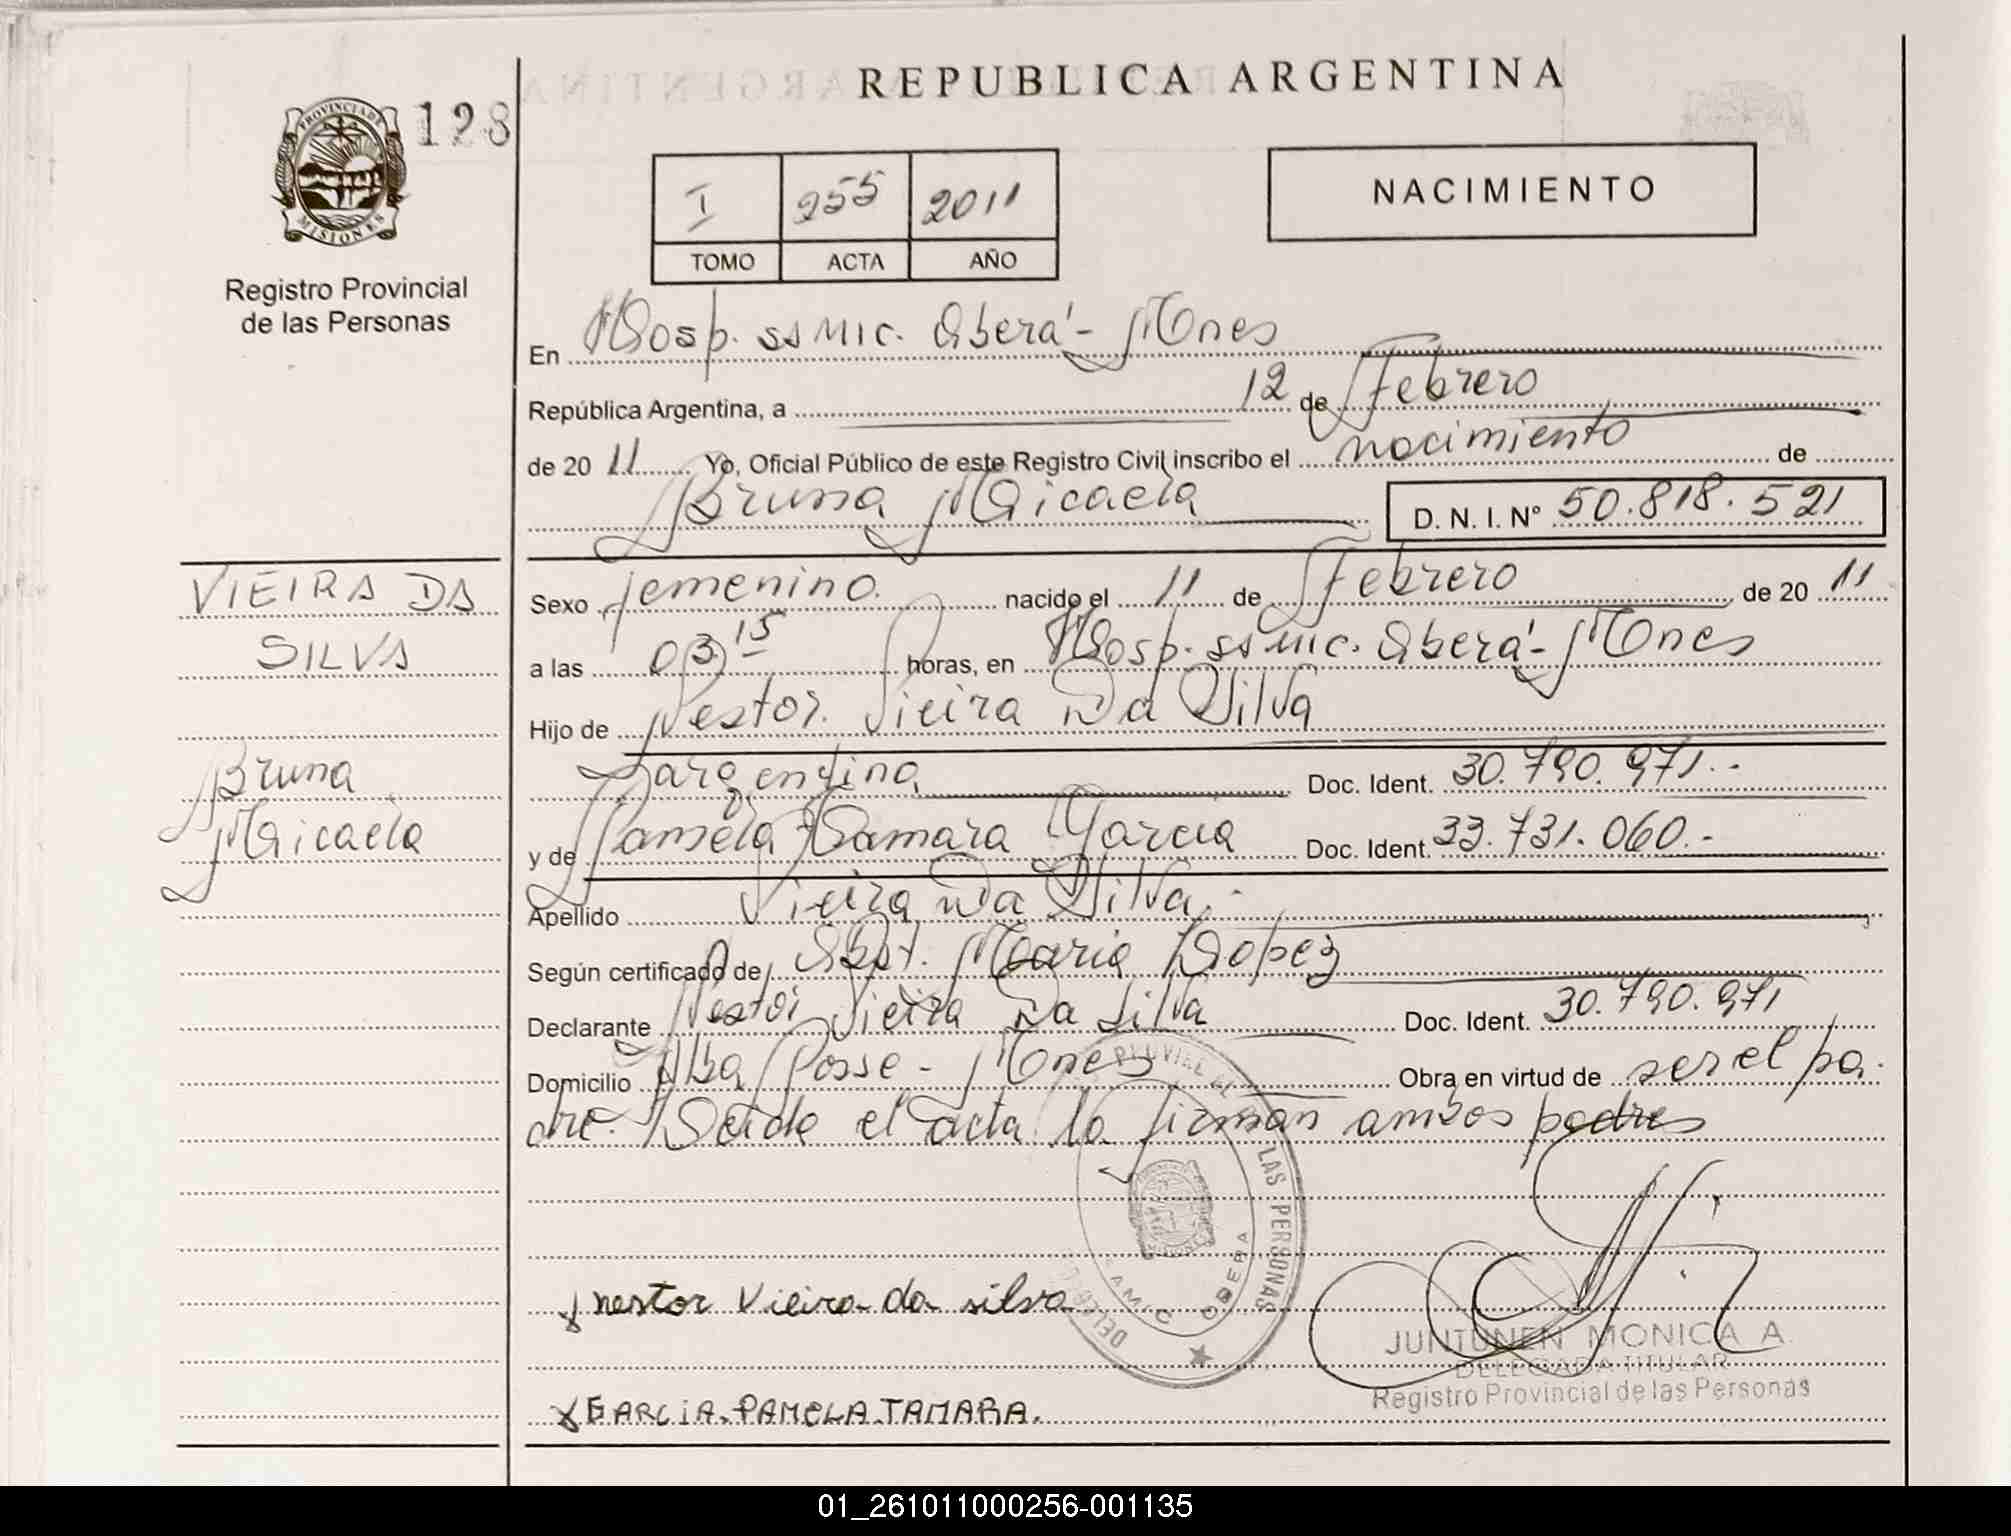 REPUBLICA ARGENTINA
PROVINCIA DE MISIONES
128
Registro Provincial
de las Personas
I 255 2011
TOMO ACTA AÑO
NACIMIENTO
En Hosp. SSMIC. Oberá - Mnes
República Argentina, a 12 de Febrero
de 20 11 Yo, Oficial Público de este Registro Civil inscribo el nacimiento de
Bruna Micaela D. N. I. Nº 50.818.521
VIEIRA DA
SILVA
Bruna
Micaela
Sexo femenino. nacido el 11 de Febrero de 20 11
a las 03 15 horas, en Hosp. SSMIC. Oberá - Mnes
Hijo de Nestor Vieira Da Silva
argentino Doc. Ident. 30.790.971.-
y de Pamela Tamara Garcia Doc. Ident. 33.731.060.-
Apellido Vieira Da Silva.-
Según certificado de Obst. Maria Lopez
Declarante Nestor Vieira Da Silva Doc. Ident. 30.790.971
Domicilio Alba Posse - Mnes Obra en virtud de ser el pa-
dre. Leida el acta la firman ambos padres
LAS PERSONAS
OBERA
nestor Vieira da silva
JUNTUNEN MONICA A.
DELEGADA TITULAR
Registro Provincial de las Personas
GARCIA.PAMELA.TAMARA.
01_261011000256-001135